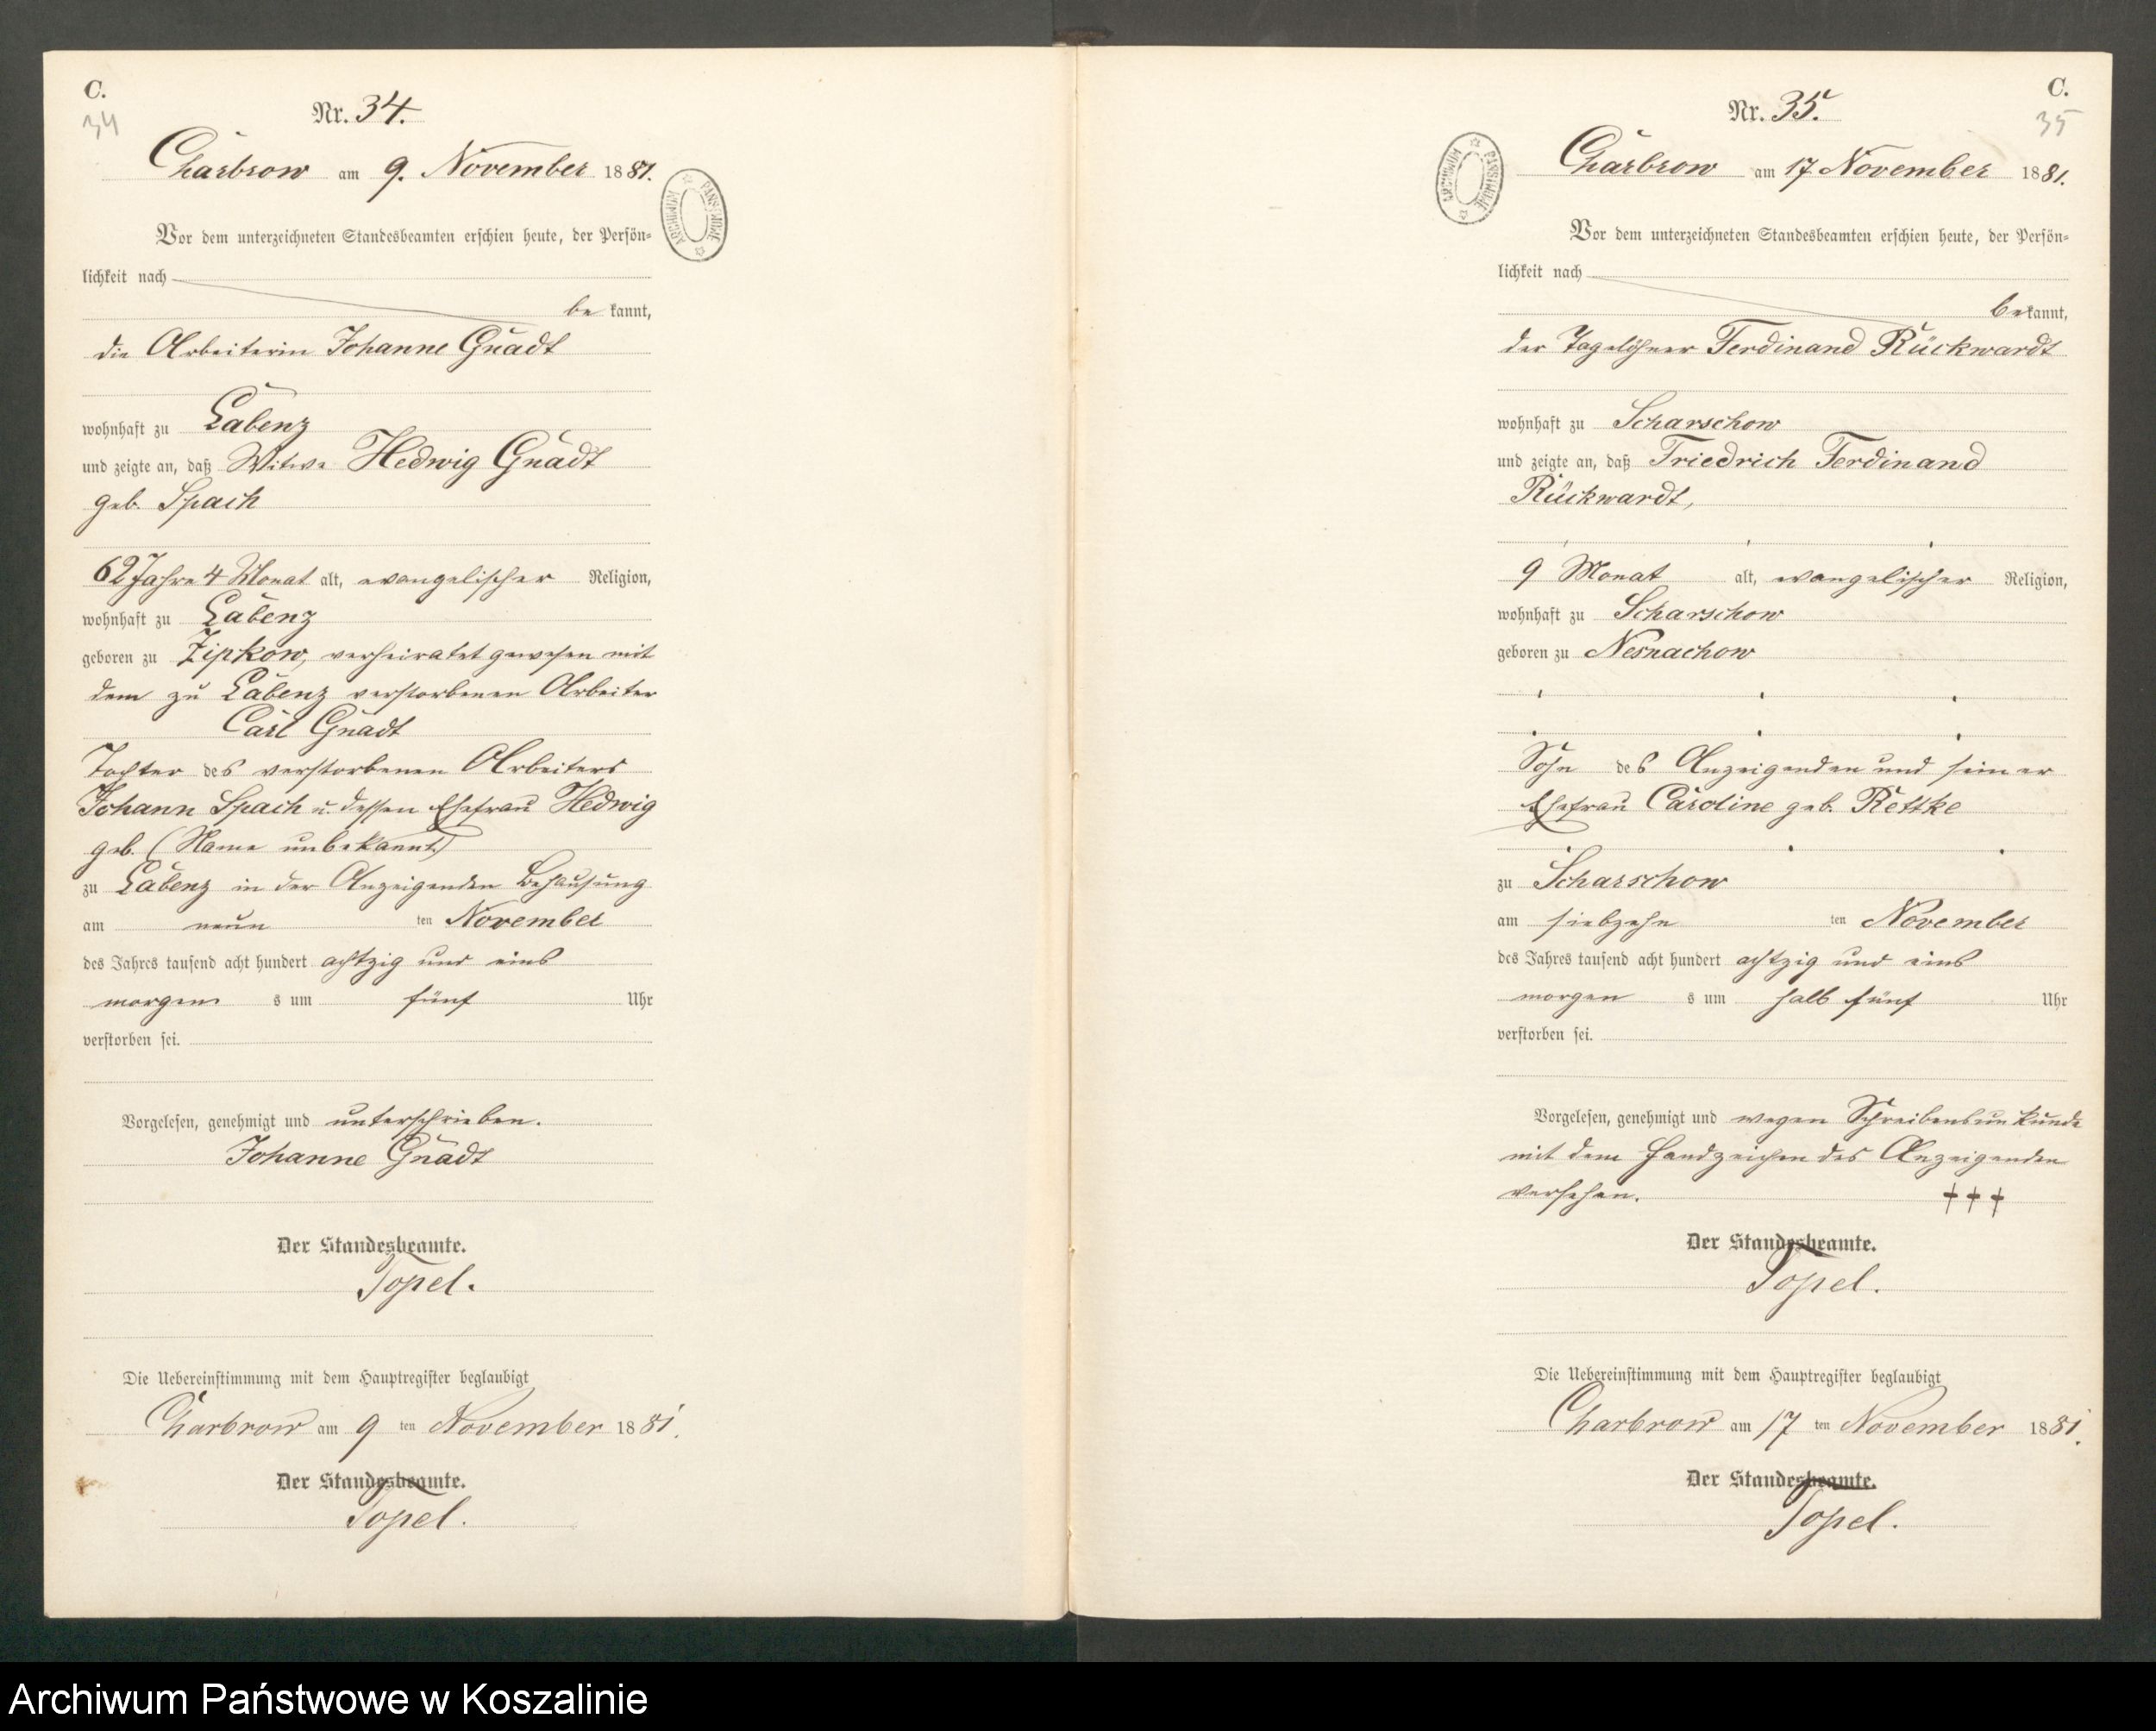 C.
34
Nr. 34.
Charbrow am 9. November 1881.
ARCHIWUM PAŃSTWOWE
Vor dem unterzeichneten Standesbeamten erschien heute, der Persön-
lichkeit nach
be kannt,
die Arbeiterin Johanne Gnadt
wohnhaft zu Labenz
und zeigte an, daß Witwe Hedwig Gnadt
geb. Spach
62 Jahre 4 Monat alt, evangelischer Religion,
wohnhaft zu Labenz
geboren zu Zipkow, verheiratet gewesen mit
dem zu Labenz verstorbenen Arbeiter
Carl Gnadt
Tochter des verstorbenen Arbeiters
Johann Spach u. dessen Ehefrau Hedwig
geb. (Name unbekannt)
zu Labenz in der Anzeigenden Behausung
am neun ten November
des Jahres tausend acht hundert achtzig und eins
morgens s um fünf Uhr
verstorben sei.
Vorgelesen, genehmigt und unterschrieben.
Johanne Gnadt
Der Standesbeamte.
Topel.
Die Uebereinstimmung mit dem Hauptregister beglaubigt
Charbrow am 9 ten November 1881.
Der Standesbeamte.
Topel.
C.
35
Nr. 35.
Charbrow am 17 November 1881.
ARCHIWUM PAŃSTWOWE
Vor dem unterzeichneten Standesbeamten erschien heute, der Persön-
lichkeit nach
be kannt,
der Tagelöhner Ferdinand Rückwardt
wohnhaft zu Scharschow
und zeigte an, daß Friedrich Ferdinand
Rückwardt,
9 Monat alt, evangelischer Religion,
wohnhaft zu Scharschow
geboren zu Nesnachow
Sohn des Anzeigenden und seiner
Ehefrau Caroline geb. Rettke
zu Scharschow
am siebzehn ten November
des Jahres tausend acht hundert achtzig und eins
morgen s um halb fünf Uhr
verstorben sei.
Vorgelesen, genehmigt und wegen Schreibensunkunde
mit dem Handzeichen des Anzeigenden
versehen. +++
Der Standesbeamte.
Topel.
Die Uebereinstimmung mit dem Hauptregister beglaubigt
Charbrow am 17 ten November 1881.
Der Standesbeamte.
Topel.
Archiwum Państwowe w Koszalinie